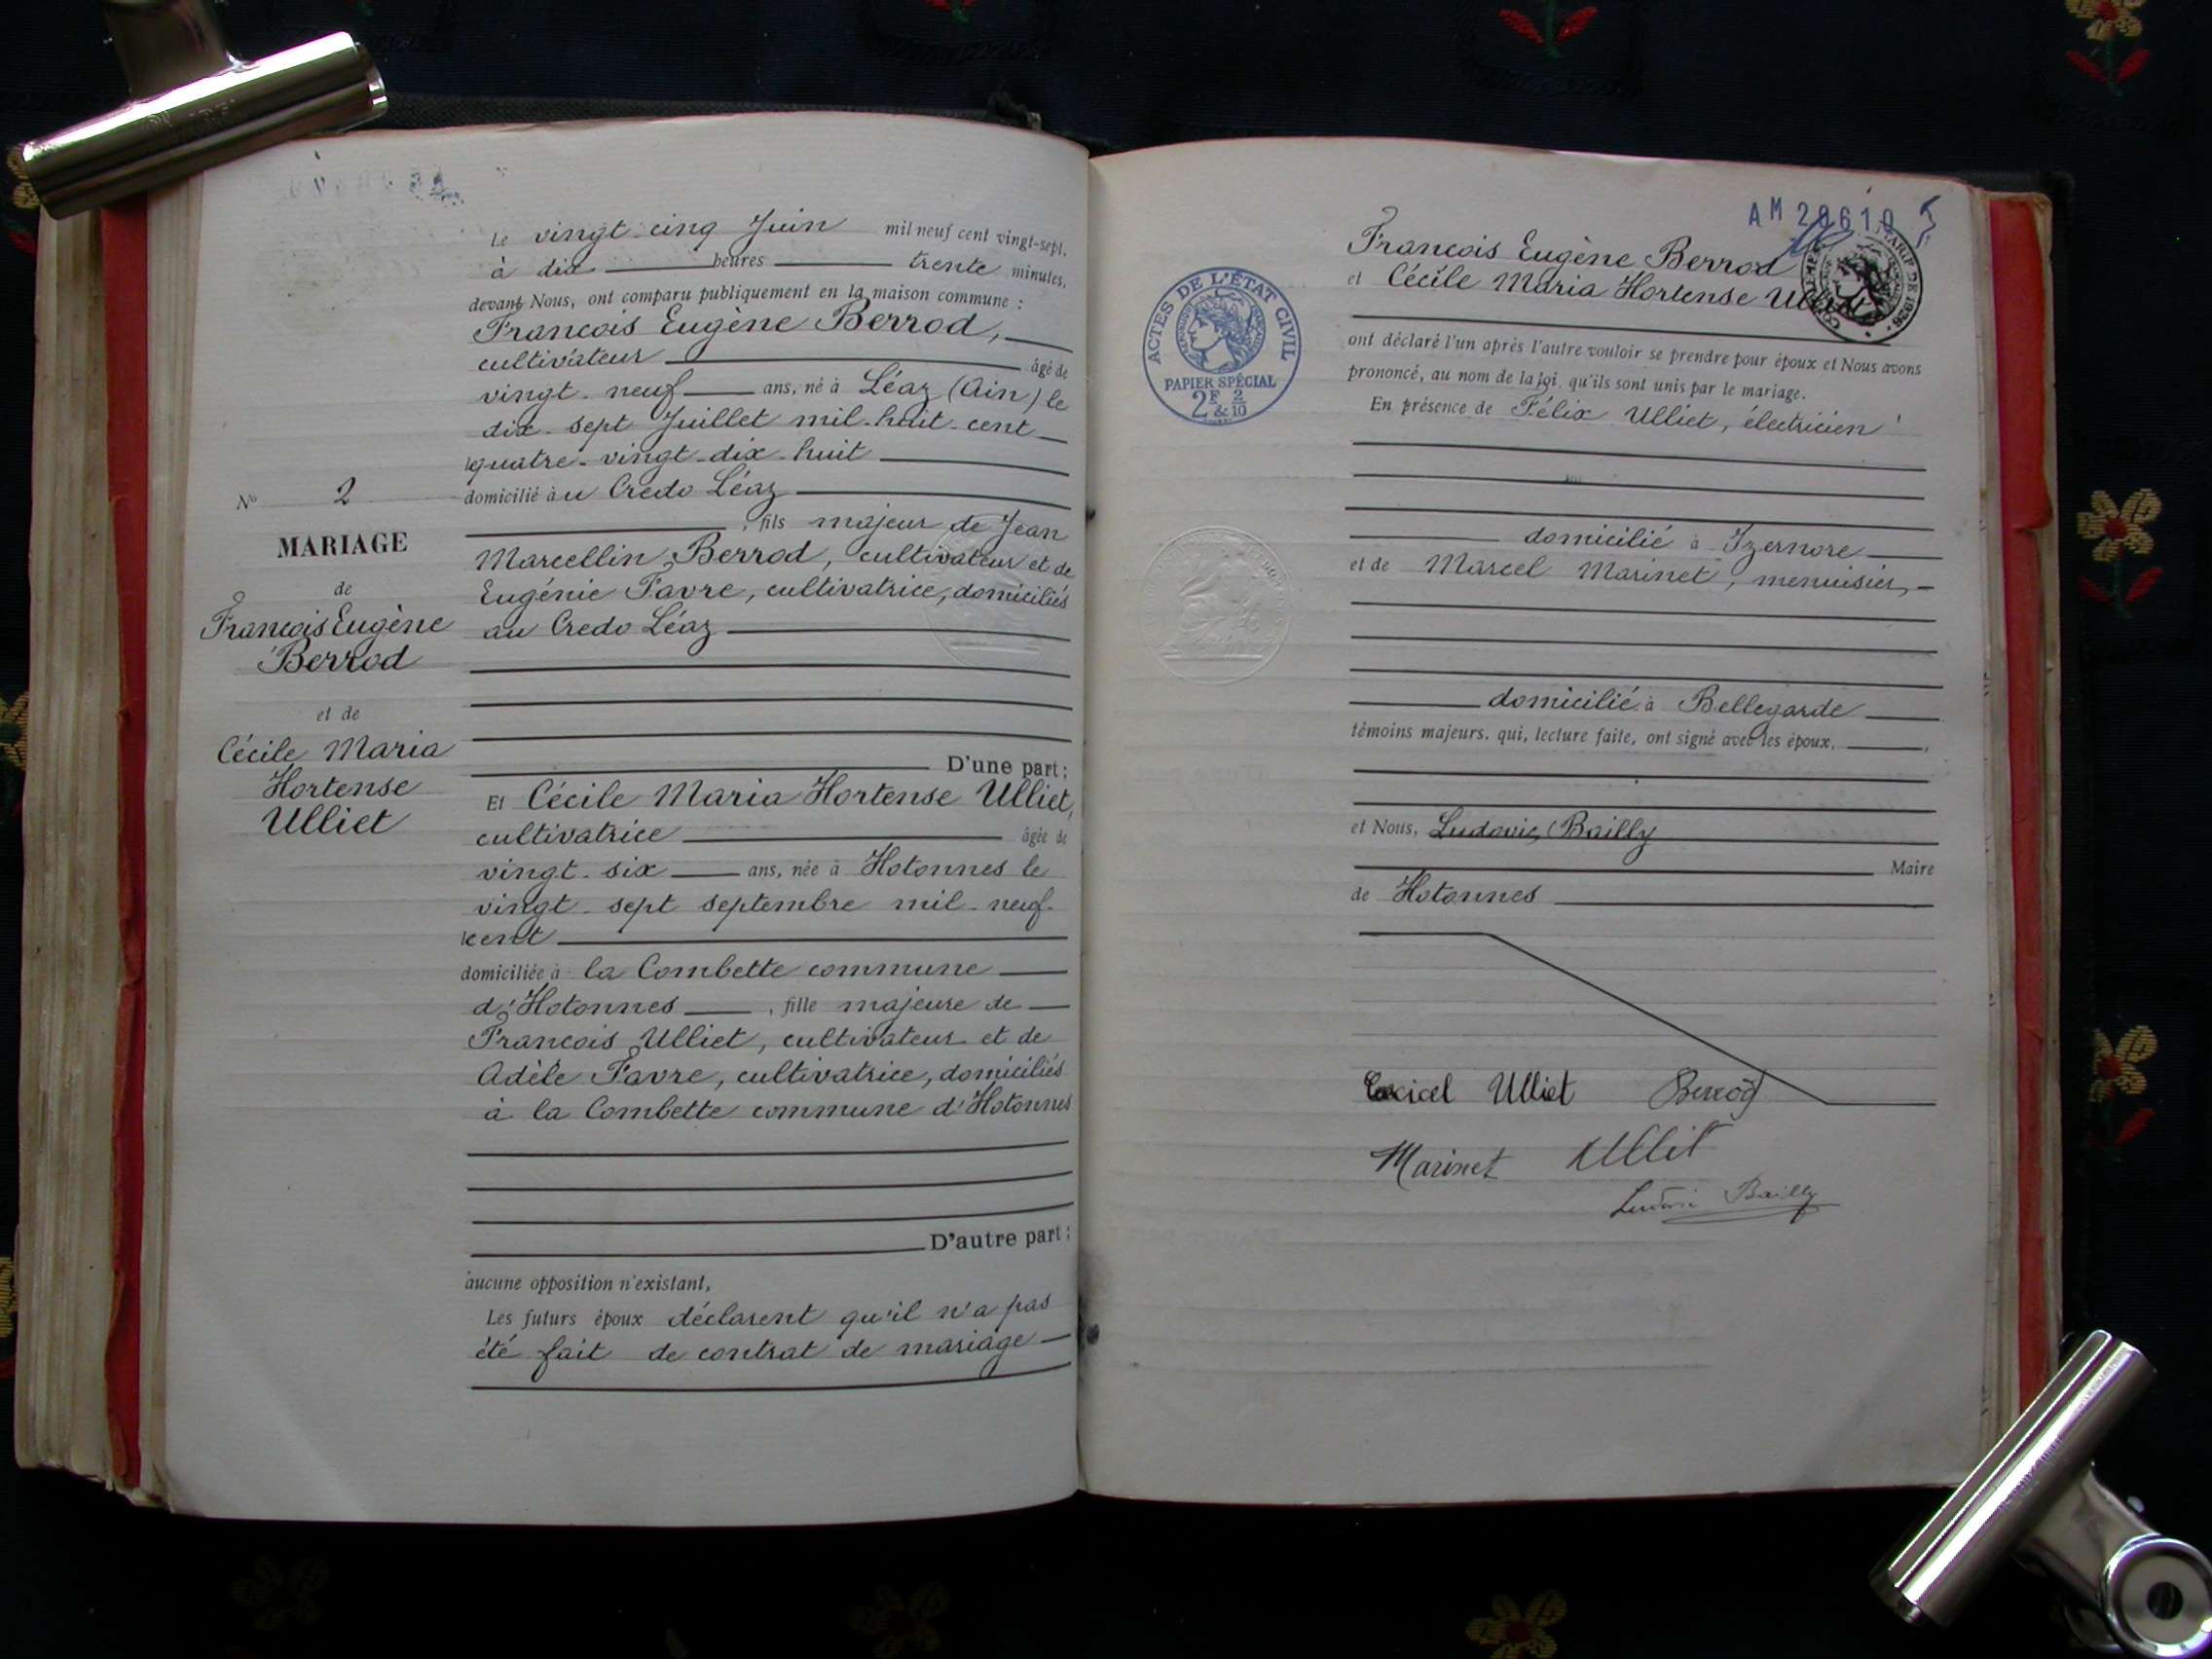 Le vingt-cinq Juin mil neuf cent vingt-sept,
à dix heures trente minutes,
devant Nous, ont comparu publiquement en la maison commune :
Francois Eugène Berrod,
cultivateur âgé de
vingt-neuf ans, né à Léaz (Ain) le
dix-sept Juillet mil-huit-cent
quatre-vingt-dix-huit
domicilié au Credo Léaz
, fils majeur de Jean
Marcellin Berrod, cultivateur et de
Eugénie Favre, cultivatrice, domiciliés
au Credo Léaz
D'une part ;
Et Cécile Maria Hortense Ulliet,
cultivatrice âgée de
vingt-six ans, née à Hotonnes le
vingt-sept septembre mil-neuf-
cent
domiciliée à la Combette commune
d'Hotonnes , fille majeure de
Francois Ulliet, cultivateur et de
Adèle Favre, cultivatrice, domiciliés
à la Combette commune d'Hotonnes
D'autre part ;
aucune opposition n'existant,
Les futurs époux déclarent qu'il n'a pas
été fait de contrat de mariage
N° 2
MARIAGE
de
Francois Eugène
Berrod
et de
Cécile Maria
Hortense
Ulliet
AM 20610
Francois Eugène Berrod
et Cécile Maria Hortense Ulliet
TARIF DE 1926
ACTES DE L'ÉTAT CIVIL
PAPIER SPÉCIAL
2F & 2/10
ont déclaré l'un après l'autre vouloir se prendre pour époux et Nous avons
prononcé, au nom de la loi, qu'ils sont unis par le mariage.
En présence de Félix Ulliet, électricien
domicilié à Izernore
et de Marcel Marinet, menuisier,
domicilié à Bellegarde
témoins majeurs, qui, lecture faite, ont signé avec les époux,
et Nous, Ludovic Bailly
Maire
de Hotonnes
Ulliet Berrod
Marinet Ulliet
Ludovic Bailly